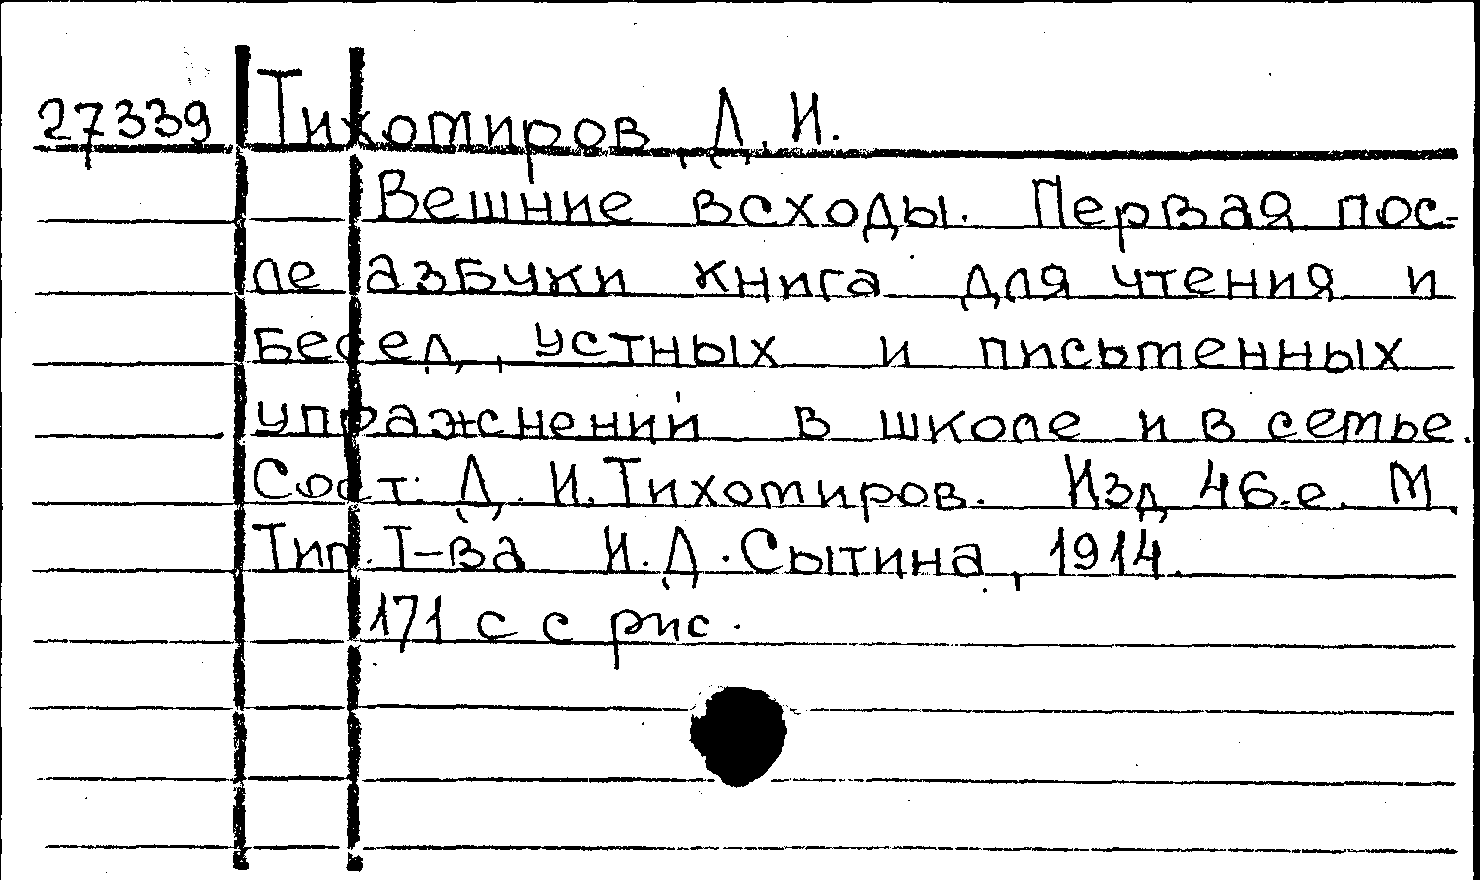 27339 Тихомиров, Д. И.
Вешние всходы. Первая пос-
ле азбуки книга для чтения и
бесед, устных и письменных
упражнений в школе и в семье.
Сост. Д. И. Тихомиров. Изд 46-е. М.
Тип. Т-ва И. Д. Сытина, 1914.
171 с с рис.